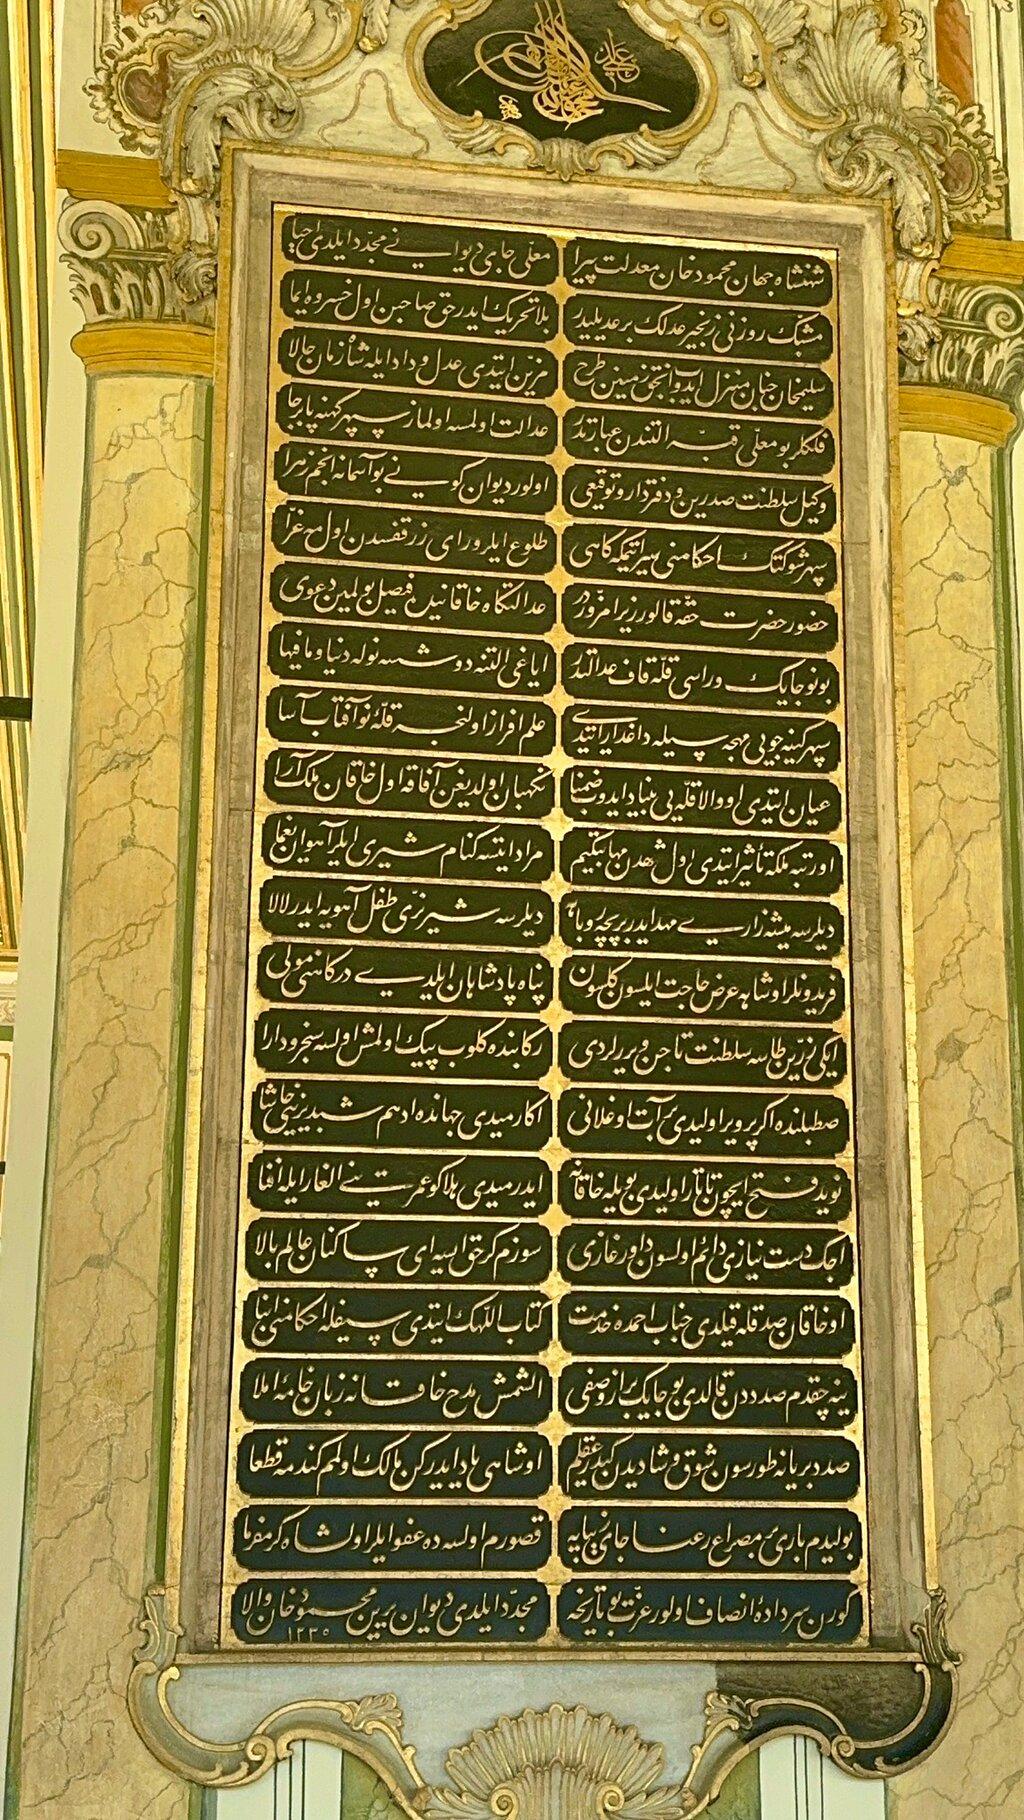 شهنشاه جهان محمود خان معدلت پیرا
معلی جای دیوانی مجدد ایلدی احیا
مشبک روزنی زنجیر عدلک بر عدیلیدر
بلا تحریک ایدر حق صاحبن اول خسروه ایما
سلیمان خان
مزین ایتدی عدل و داد ایله شاه زمان حالا
فلکلر بو معلی قبه التندن عبارتدر
عدالت اولمسه اولماز سپهر کهنه پابرجا
وکیل سلطنت صدرین و دفتردار و توقیعی
اولور دیوان کونی بو آسمانه انجم زهرا
سپهر شوکتک احکامنی سیر ایتمکه کاهی
طلوع ایلر ورای زر قفسدن اول مه غرا
حضور حضرت حقه قالور زیرا مزوردر
عدالتکاه خاقانیده فیصل بولمین دعوی
بو نو جایک وراسی قله قاف عدالتدر
ایاغی التنه دوشسه نوله دنیا و مافیها
سپهر کینه جویی مهچه سیله داغدار ایتدی
علم افراز اولنجه قله نو آفتاب آسا
عیان ایتدی او والا قله یی بنیاد ایدوب ضمنا
نکهبان اولدیغن آفاقه اول خاقان ملک آرا
او رتبه ملکه تأثیر ایتدی اول شهدن مهابت کیم
مراد ایتسه کنام شیری ایلر آهوان یغما
دیلرسه بیشه زاری مهد ایدر بر بچه روباه
دیلرسه شیر نری طفل آهویه ایدر لالا
فریدونلر او شاهه عرض حاجت ایلسون کلسون
پناه پادشاهان ایلدی درکاهنی مولی
ایکی زرین طاسه سلطنت تاجن ویررلردی
رکابنده کلوب پیک اولمش اولسه سنجر و دارا
صطبلنده اکر پرویز اولیدی بر آت اوغلانی
آکارمیدی جهانده ادهم شبدیزینی حاشا
نوید فتح ایچون تاتار اولیدی بویله خاقانه
ایدرمیدی هلاکو عمرینی الغار ایله افنا
آجک دست نیازی دائم اولسون داور غازی
سوزم کرچه ایسه ای ساکنان عالم بالا
او خاقان صدق له قیلدی جناب احمده خدمت
کتاب اللهک ایتدی سیفله احکامنی ابقا
ینه چقدم صدددن قالدی بو جایک براز وصفی
الشمش مدح خاقانه زبان خامه املا
صدد بر یانه طورسون شوق و شادیدن کیدر عقلم
او شاهی یاد ایدرکن مالک اولمم کندمه قطعا
بولیدم باری بر مصراع رعنا جای زیبایه
قصورم اولسه ده عفو ایلر اول شاه کرمفرما
کورن سرداده انصاف اولور عزت بو تاریخه
مجدد ایلدی دیوان یرین محمود خان والا
١٢٣٥